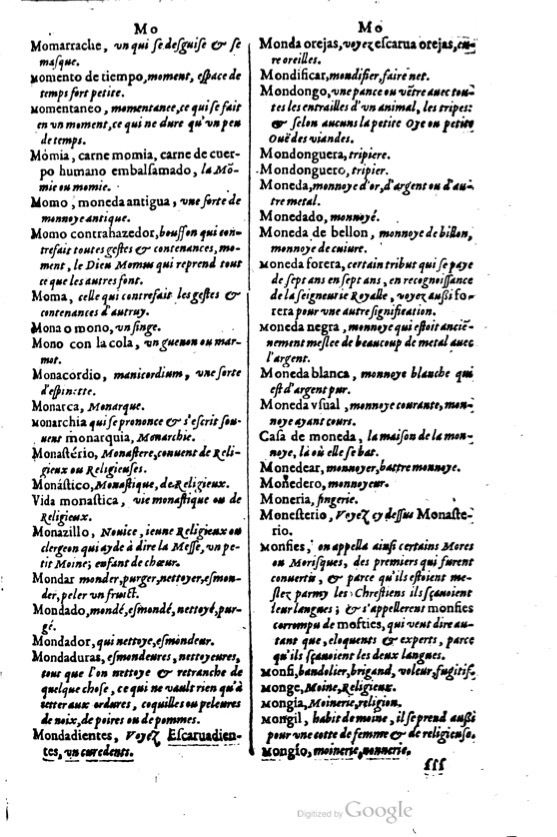 Mo
Momarrache, un qui se desguise & se
masque.
Momento de tiempo, moment, espace de
temps fort petite.
Momentaneo, momentanee, ce qui se fait
en un moment, ce qui ne dure qu'un peu
de temps.
Mómia, carne momia, carne de cuer-
po humano embalsamado, la Mō-
mie ou momie.
Momo, moneda antigua, une sorte de
monnoye antique.
Momo contrahazedor, bouffon qui con-
trefait toutes gestes & contenances, mo-
ment, le Dieu Momus qui reprend tout
ce que les autres font.
Moma, celle qui contrefait les gestes &
contenances d'autruy.
Mona o mono, un singe.
Mono con la cola, un guenon ou mar-
mot.
Monacordio, manicordium, une sorte
d'espinette.
Monarca, Monarque.
Monarchia qui se prononce & s'escrit sou-
uent monarquia, Monarchie.
Monastério, Monastere, conuent de Reli-
gieux ou Religieuses.
Monástico, Monastique, de Religieux.
Vida monastica, vie monastique ou de
Religieux.
Monazillo, Nouice, ieune Religieux ou
clergeon qui ayde à dire la Messe, un pe-
tit Moine; enfant de chœur.
Mondar monder, purger, nettoyer, esmon-
der, peler un fruict.
Mondado, mondé, esmondé, nettoyé, pur-
gé.
Mondador, qui nettoye, esmondeur.
Mondaduras, esmondeures, nettoyeures,
tout que l'on nettoye & retranche de
quelque chose, ce qui ne vault rien qu'à
ietter aux ordures, coquilles ou peleures
de noix, de poires ou de pommes.
Mondadientes, Voyez Escaruadien-
tes, un curedents.
Mo
Monda orejas, voyez escarua orejas, cu-
re oreilles.
Mondificar, mondifier, faire net.
Mondongo, une pance ou vētre auec tou-
tes les entrailles d'un animal, les tripes:
& selon aucuns la petite Oye ou petite
Ouë des viandes.
Mondonguera, tripiere.
Mondonguero, tripier.
Moneda, monnoye d'or, d'argent ou d'au-
tre metal.
Monedado, monnoyé.
Moneda de bellon, monnoye de billon,
monnoye de cuiure.
Moneda forera, certain tribut qui se paye
de sept ans en sept ans, en recognoissance
de la seigneurie Royalle, voyez aussi fo-
rera pour une autre signification.
Moneda negra, monnoye qui estoit anciē-
nement meslee de beaucoup de metal auec
l'argent.
Moneda blanca, monnoye blanche qui
est d'argent pur.
Moneda vsual, monnoye courante, mon-
noye ayant cours.
Casa de moneda, la maison de la mon-
noye, là où elle se bat.
Monedear, monnoyer, battre monnoye.
Monedero, monnoyeur.
Moneria, singerie.
Monesterio, Voyez cy dessus Monaste-
rio.
Monfies, on appella ainsi certains Mores
ou Morisques, des premiers qui furent
conuertis, & parce qu'ils estoient me-
slez parmy les Chrestiens ils sçauoient
leur langues; & s'appellerent monfies
corrompu de mofties, qui vent dire au-
tant que, eloquents & experts, parce
qu'ils sçauoient les deux langues.
Monfi, bandolier, brigand, voleur, fugitif.
Monge, Moine, Religieux.
Mongia, Moinerie, religion.
Mongil, habit de moine, il se prend aussi
pour une cotte de femme & de religieuse.
Mongio, moinerie, nonnerie.
sss
Digitized by Google